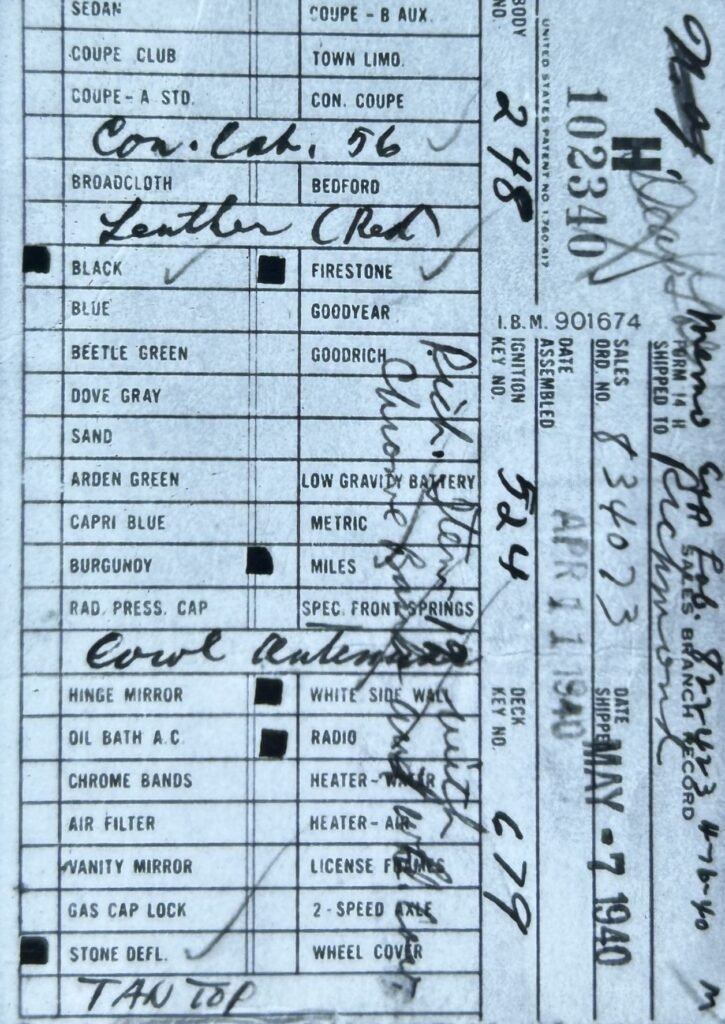 SEDAN
COUPE - B AUX.
COUPE CLUB
TOWN LIMO.
COUPE - A STD.
CON. COUPE
Con. Cab. 56
BROADCLOTH
BEDFORD
Leather (Red)
BLACK
FIRESTONE
BLUE
GOODYEAR
BEETLE GREEN
GOODRICH
DOVE GRAY
SAND
ARDEN GREEN
LOW GRAVITY BATTERY
CAPRI BLUE
METRIC
BURGUNDY
MILES
RAD. PRESS. CAP
SPEC. FRONT SPRINGS
Cowl Antenna
HINGE MIRROR
WHITE SIDE WALL
OIL BATH A.C.
RADIO
CHROME BANDS
HEATER - WATER
AIR FILTER
HEATER - AIR
VANITY MIRROR
LICENSE FRAMES
GAS CAP LOCK
2 - SPEED AXLE
STONE DEFL.
WHEEL COVER
TAN TOP
Rich. Item 19 with
Chrome Bands and
BODY NO. 248
IGNITION KEY NO. 524
DECK KEY NO. 679
UNITED STATES PATENT NO. 1,760,617
H
102340
I.B.M. 901674
DATE ASSEMBLED APR 11 1940
SALES ORD. NO. 834073
DATE SHIPPED MAY - 7 1940
FORM 14 H
SALES BRANCH RECORD
SHIPPED TO Richmond
Memo 822423 4-16-40 M